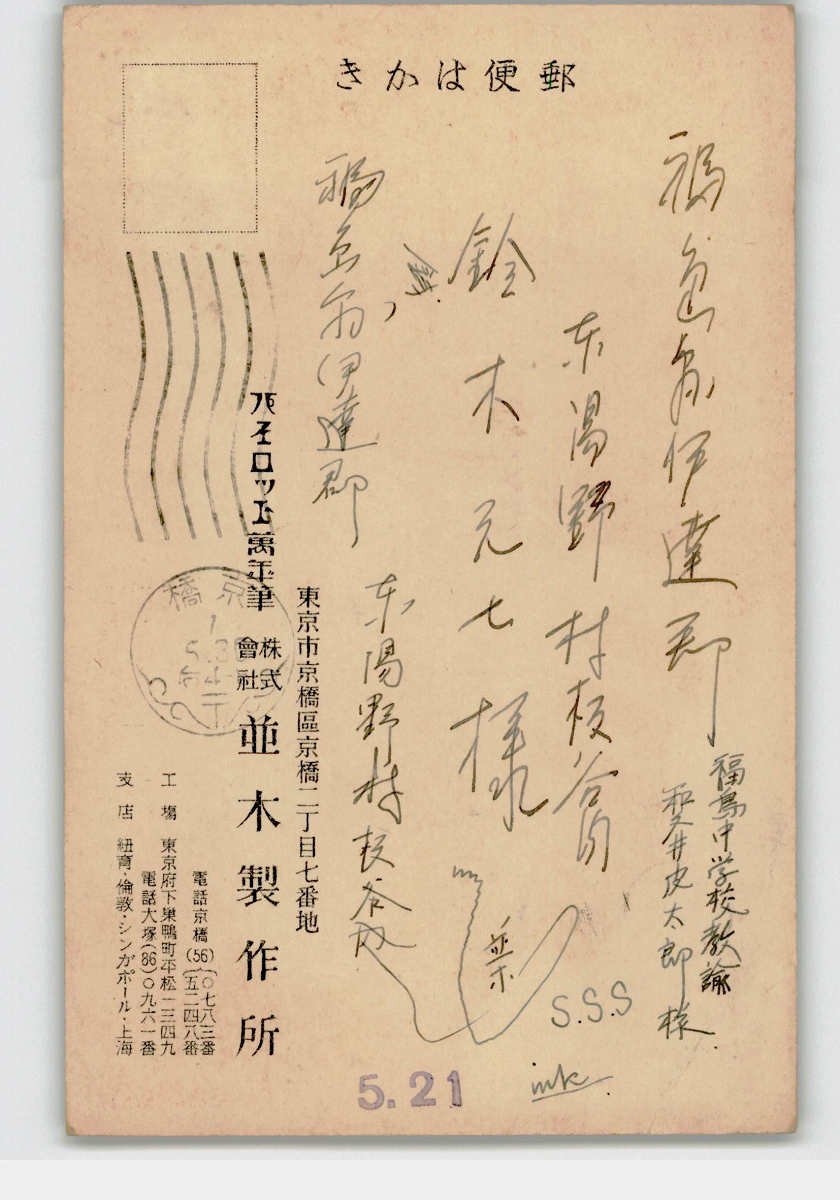 郵便はかき
福島中学校教諭
太郎様
福島県伊達郡
東湯野村板谷内
鈴木元七様
福島県伊達郡
東湯野村
東京市京橋區京橋二丁目七番地
パイロット萬年筆
株式會社 並木製作所
電話京橋(56){〇七八三番
五二四八番
工場 東京府下巣鴨町平松一三四九
電話大塚(86)〇九六一番
支店 紐育・倫敦・シンガポール・上海
京橋
S.S.S
ink
5.21